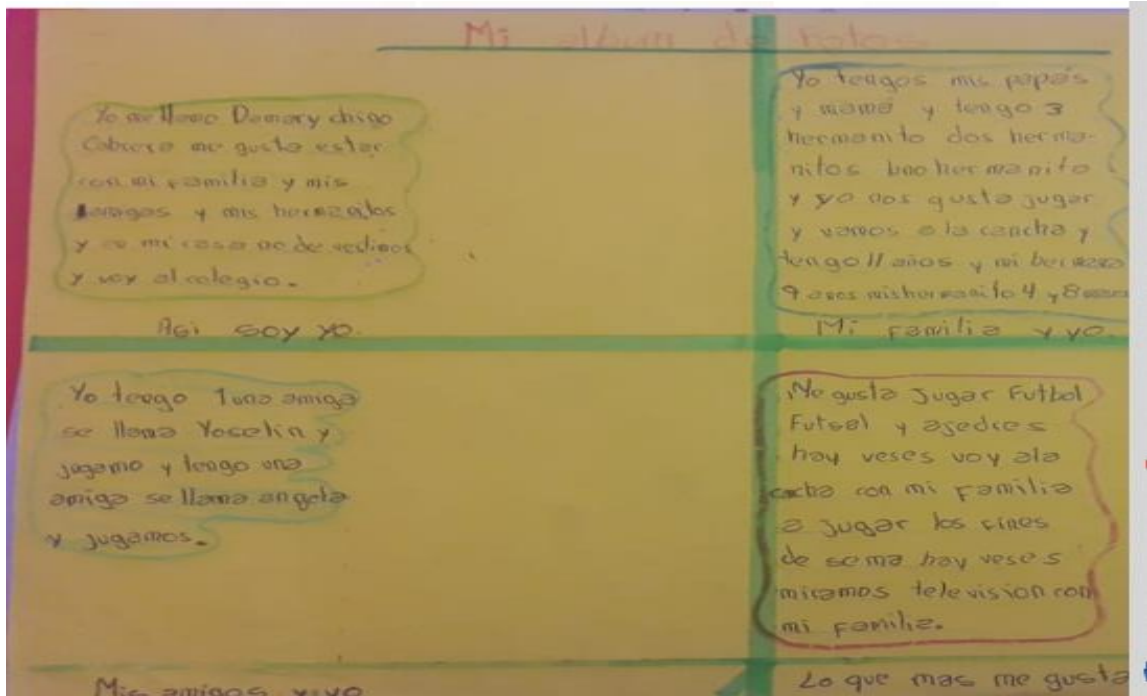 Mi album de fotos
Yo me llamo Damary chino
Cabrera me gusta estar
con mi familia y mis
amigos y mis hermanitos
y en mi casa no de vedinos
y voy al colegio.
Asi soy yo.
Yo tengos mis papás
y mamá y tengo 3
hermanito dos herma-
nitos uno hermanito
y yo nos gusta jugar
y vamos a la cancha y
tengo 11 años y mi hermana
9 años mis hermanito 4 y 8
Mi familia y yo.
Yo tengo 1 una amiga
se llama Yoselin y
jugamo y tengo una
amiga se llama angela
y jugamos.
Mis amigos y yo
Me gusta Jugar Futbol
Futsel y ajedres
hay veses voy ala
cacha con mi familia
a jugar los fines
de sema hay veses
miramos television con
mi familia.
Lo que mas me gusta